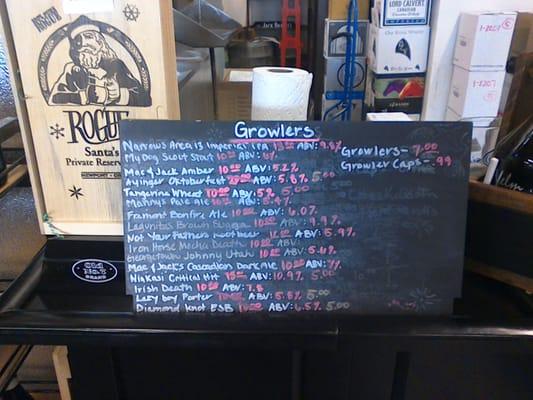 Growlers
Growlers- 7.00
Growler Caps- .99
Narrows Area 13 Imperial IPA ABV: 9.8%
My Dog Scout Stout 10.00 ABV:
Mac & Jack Amber 10.00 ABV: 5.2%
Ayinger Oktoberfest ABV: 5.8% 5.00
Tangerine Wheat 10.00 ABV: 5% 5.00
Manny's Pale Ale 10.00 ABV: 5.4%
Fremont Bonfire Ale 10.00 ABV: 6.07.
Lagunitas Brown Sugga 10.00 ABV: 9.9%
Not Your Fathers Rootbeer ABV: 5.9%
Iron Horse Mocha Death 10.00 ABV:
Georgetown Johnny Utah 10.00 ABV: 5.6%
Mac & Jack's Cascadian Dark Ale 10.00 ABV: 7%
Ninkasi Critical Hit 15.00 ABV: 10.9% 5.00
Irish Death 10.00 ABV: 7.8
Lazy boy Porter ABV: 5.8% 5.00
Diamond Knot ESB 10.00 ABV: 6.5% 5.00
ROGUE
Santa's
Private Reserve
NEWPORT
OLD No. 7
BRAND
LORD CALVERT
CANADIAN